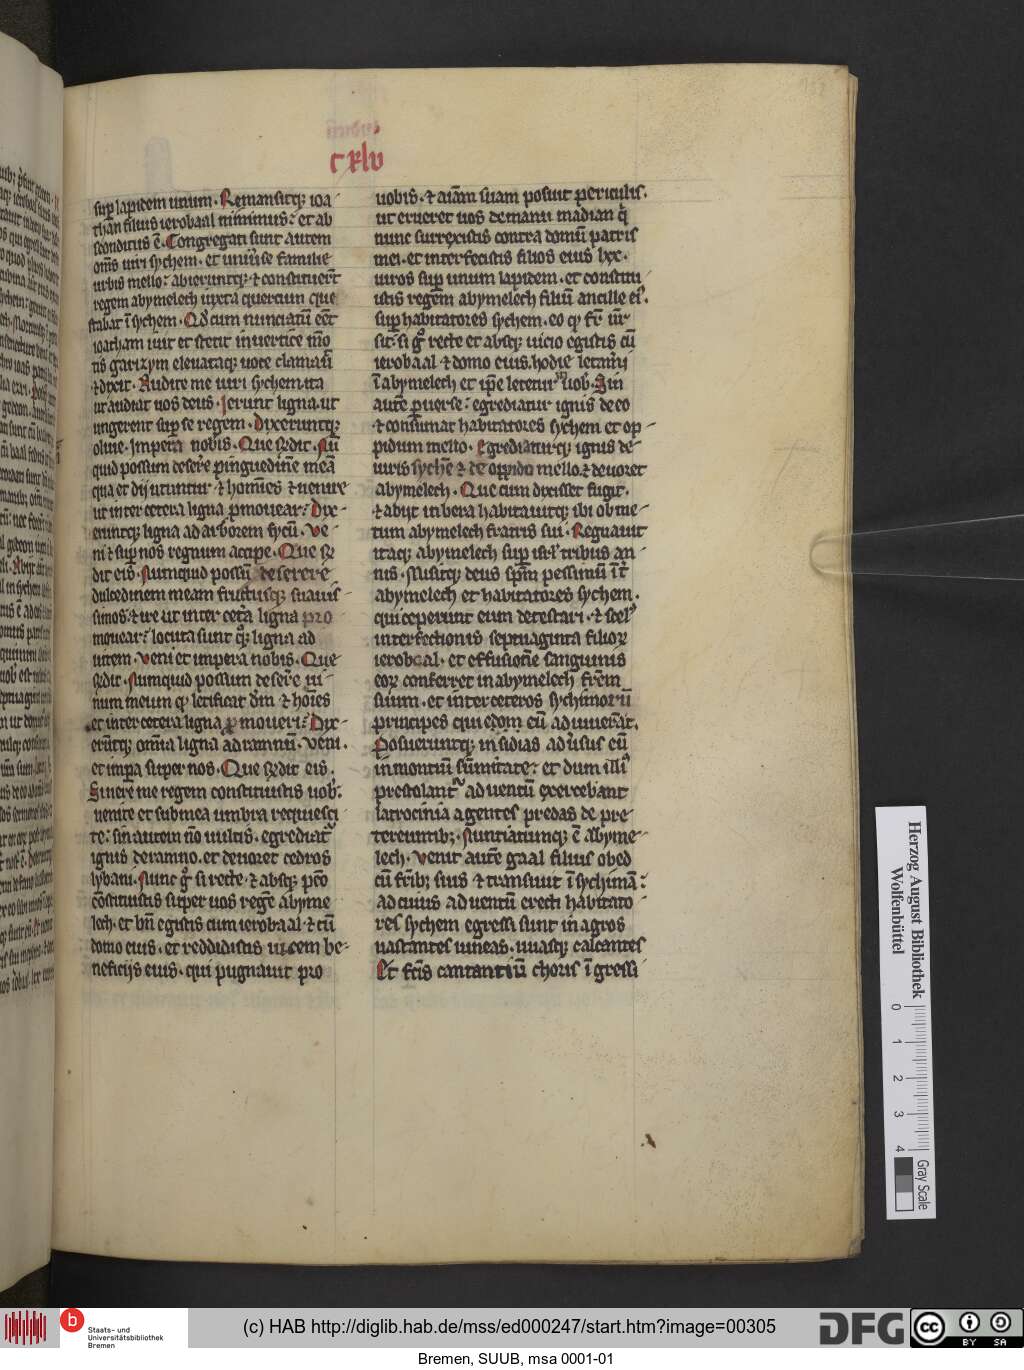 cxlv
sup̱ lapidem unum. Remansitqꝫ ioa-
than filius ieroboal minimus: et ab
sconditus ē. Congregati sunt autem
om̄s uiri sychem. et uniu̾se familie
urbis mello: abieruntqꝫ ⁊ constituer̄t
regem abymelech iuxta quercum que
stabat ī sychem. Qđ cum nunciatū eēt
ioatham iuit et stetit in uertice mō
tis garizym eleuataqꝫ uoce clamauit
⁊ dixit. Audite me uiri sychem. ita
ut audiat uos deus. Ierunt ligna. ut
ungerent sup̱ se regem. Dixeruntqꝫ
oliue. Impera nobis. Que r̄dit. Nū
quid possum deserēre pinguedinē meā
qua et dij utuntur ⁊ homīes ⁊ uenire
ut inter cetera ligna p̱mouear: Dix-
eruntqꝫ ligna ad arborem fycū. Ve-
ni ⁊ sup̱ nos regnum accipe. Que r̄
dit eis. Numquid possū deserere
dulcedinem meam fructusqꝫ suauis-
simos. ⁊ ire ut inter cetā ligna pro
mouear: locuta sunt qꝫ ligna ad
uitem. Veni et impera nobis. Que
r̄dit. Numquid possum deserēre ui-
num meum qͥ letificat dm̄ ⁊ hoīes
et inter cetera ligna p̱moueri: Dix-
erūtqꝫ omīa ligna ad ramnū. Veni.
et imp̱a super nos. Que r̄dit eis.
Si uere me regem constituistis uob̾.
uenite et sub mea umbra requiesci-
te: sin autem nō uultis. egrediat̾
ignis de ramno. et deuoret cedros
lybani. Nunc gͦ si recte. ⁊ absqꝫ pc̄o
cōstituistis super uos regē abyme
lech. et bn̄ egistis cum ieroboal. ⁊ cū
domo eius. et reddidistis uicem be-
neficijs eius. qui pugnauit pro
uobis. ⁊ aīam suam posuit periculis.
ut erueret uos de manu madian qͥ
nunc surrexistis contra domū patris
mei. et interfecistis filios eius lxx.
uiros sup̱ unum lapidem. et constitu-
istis regem abymelech filiū ancille ei᷒.
sup̱ habitatores sychem. eo qͩ fr̄ ur̄
sit. si gͦ recte et absqꝫ uicio egistis cū
ieroboal ⁊ domo eius. hodie letamīj
ī abymelech et ip̄e letetur ī uob̾. Sin
autē p̱uerse: egrediatur ignis de eo
⁊ consumat habitatores sychem et op-
pidum mello. Egrediaturqꝫ ignis de
uiris sychē ⁊ de oppido mello. ⁊ deuoret
abymelech. Que cum dixisset fugit.
⁊ abijt in bera habitauitqꝫ ibi ob me-
tum abymelech fratris sui. Regnauit
itaqꝫ abymelech sup̱ isr̄l tribus an-
nis. Misitqꝫ deus spm̄ pessimū īt̾
abymelech et habitatores sychem.
qui ceperunt eum detestari. ⁊ scel᷒
interfectionis septuaginta filioꝝ
ieroboal. et effusionē sanguinis
eoꝝ conferret in abymelech fr̄em
suum. et in ter ceteros sychimorū
principes qui eum adiuuerāt.
Posueruntqꝫ insidias adu̾sus eū
in montiū sūmitate: et dum illi᷒
prestolant̾ aduentū exercebant
latrocinia agentes predas de pre-
tereuntibꝫ. Nuntiatumqꝫ ē abyme-
lech. Venit autē gaal filius obed
cū fr̄ibꝫ suis ⁊ transiuit ī sychimā:
Ad cuius aduentū erecti habitato-
res sychem egressi sunt in agros
uastantes uineas. uuasqꝫ calcantes
Et fc̄is cantantiū choris īgressi
Herzog August Bibliothek
Wolfenbüttel
0 1 2 3 4
Gray Scale
b
Staats- und
Universitätsbibliothek
Bremen
(c) HAB http://diglib.hab.de/mss/ed000247/start.htm?image=00305
DFG
cc BY SA
Bremen, SUUB, msa 0001-01